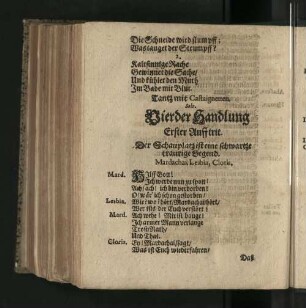 Die Schneide wird stumpff:
Was tauget der Strumpff?
2.
Kaltsinnige Rache
Gewinnet die Sache/
Und kühlet den Muth
Im Bade mit Blut.
Tantz mit Castaignetten.
Vierder Handlung
Erster Aufftrit.
Der Schauplatz ist eine schwartze
traurige Gegend.
Mardachai, Lesbia, Cloris.
Mard. Hülf Gott!
Ich werde mir zu spat/
Ach/ach! ich bin verdorben!
O! wär' ich schon gestorben/
Lesbia. Wie? wie? hört/ Mardachai/hört/
Wer ists/ der Euch verstört?
Mard. Ach! weh! Mir ist bange!
Ich armer Mann verlange
Trost/Rath/
Und That.
Cloris. Ey! Mardachai/ sagt/
Was ist Euch wiederfahren/
Daß